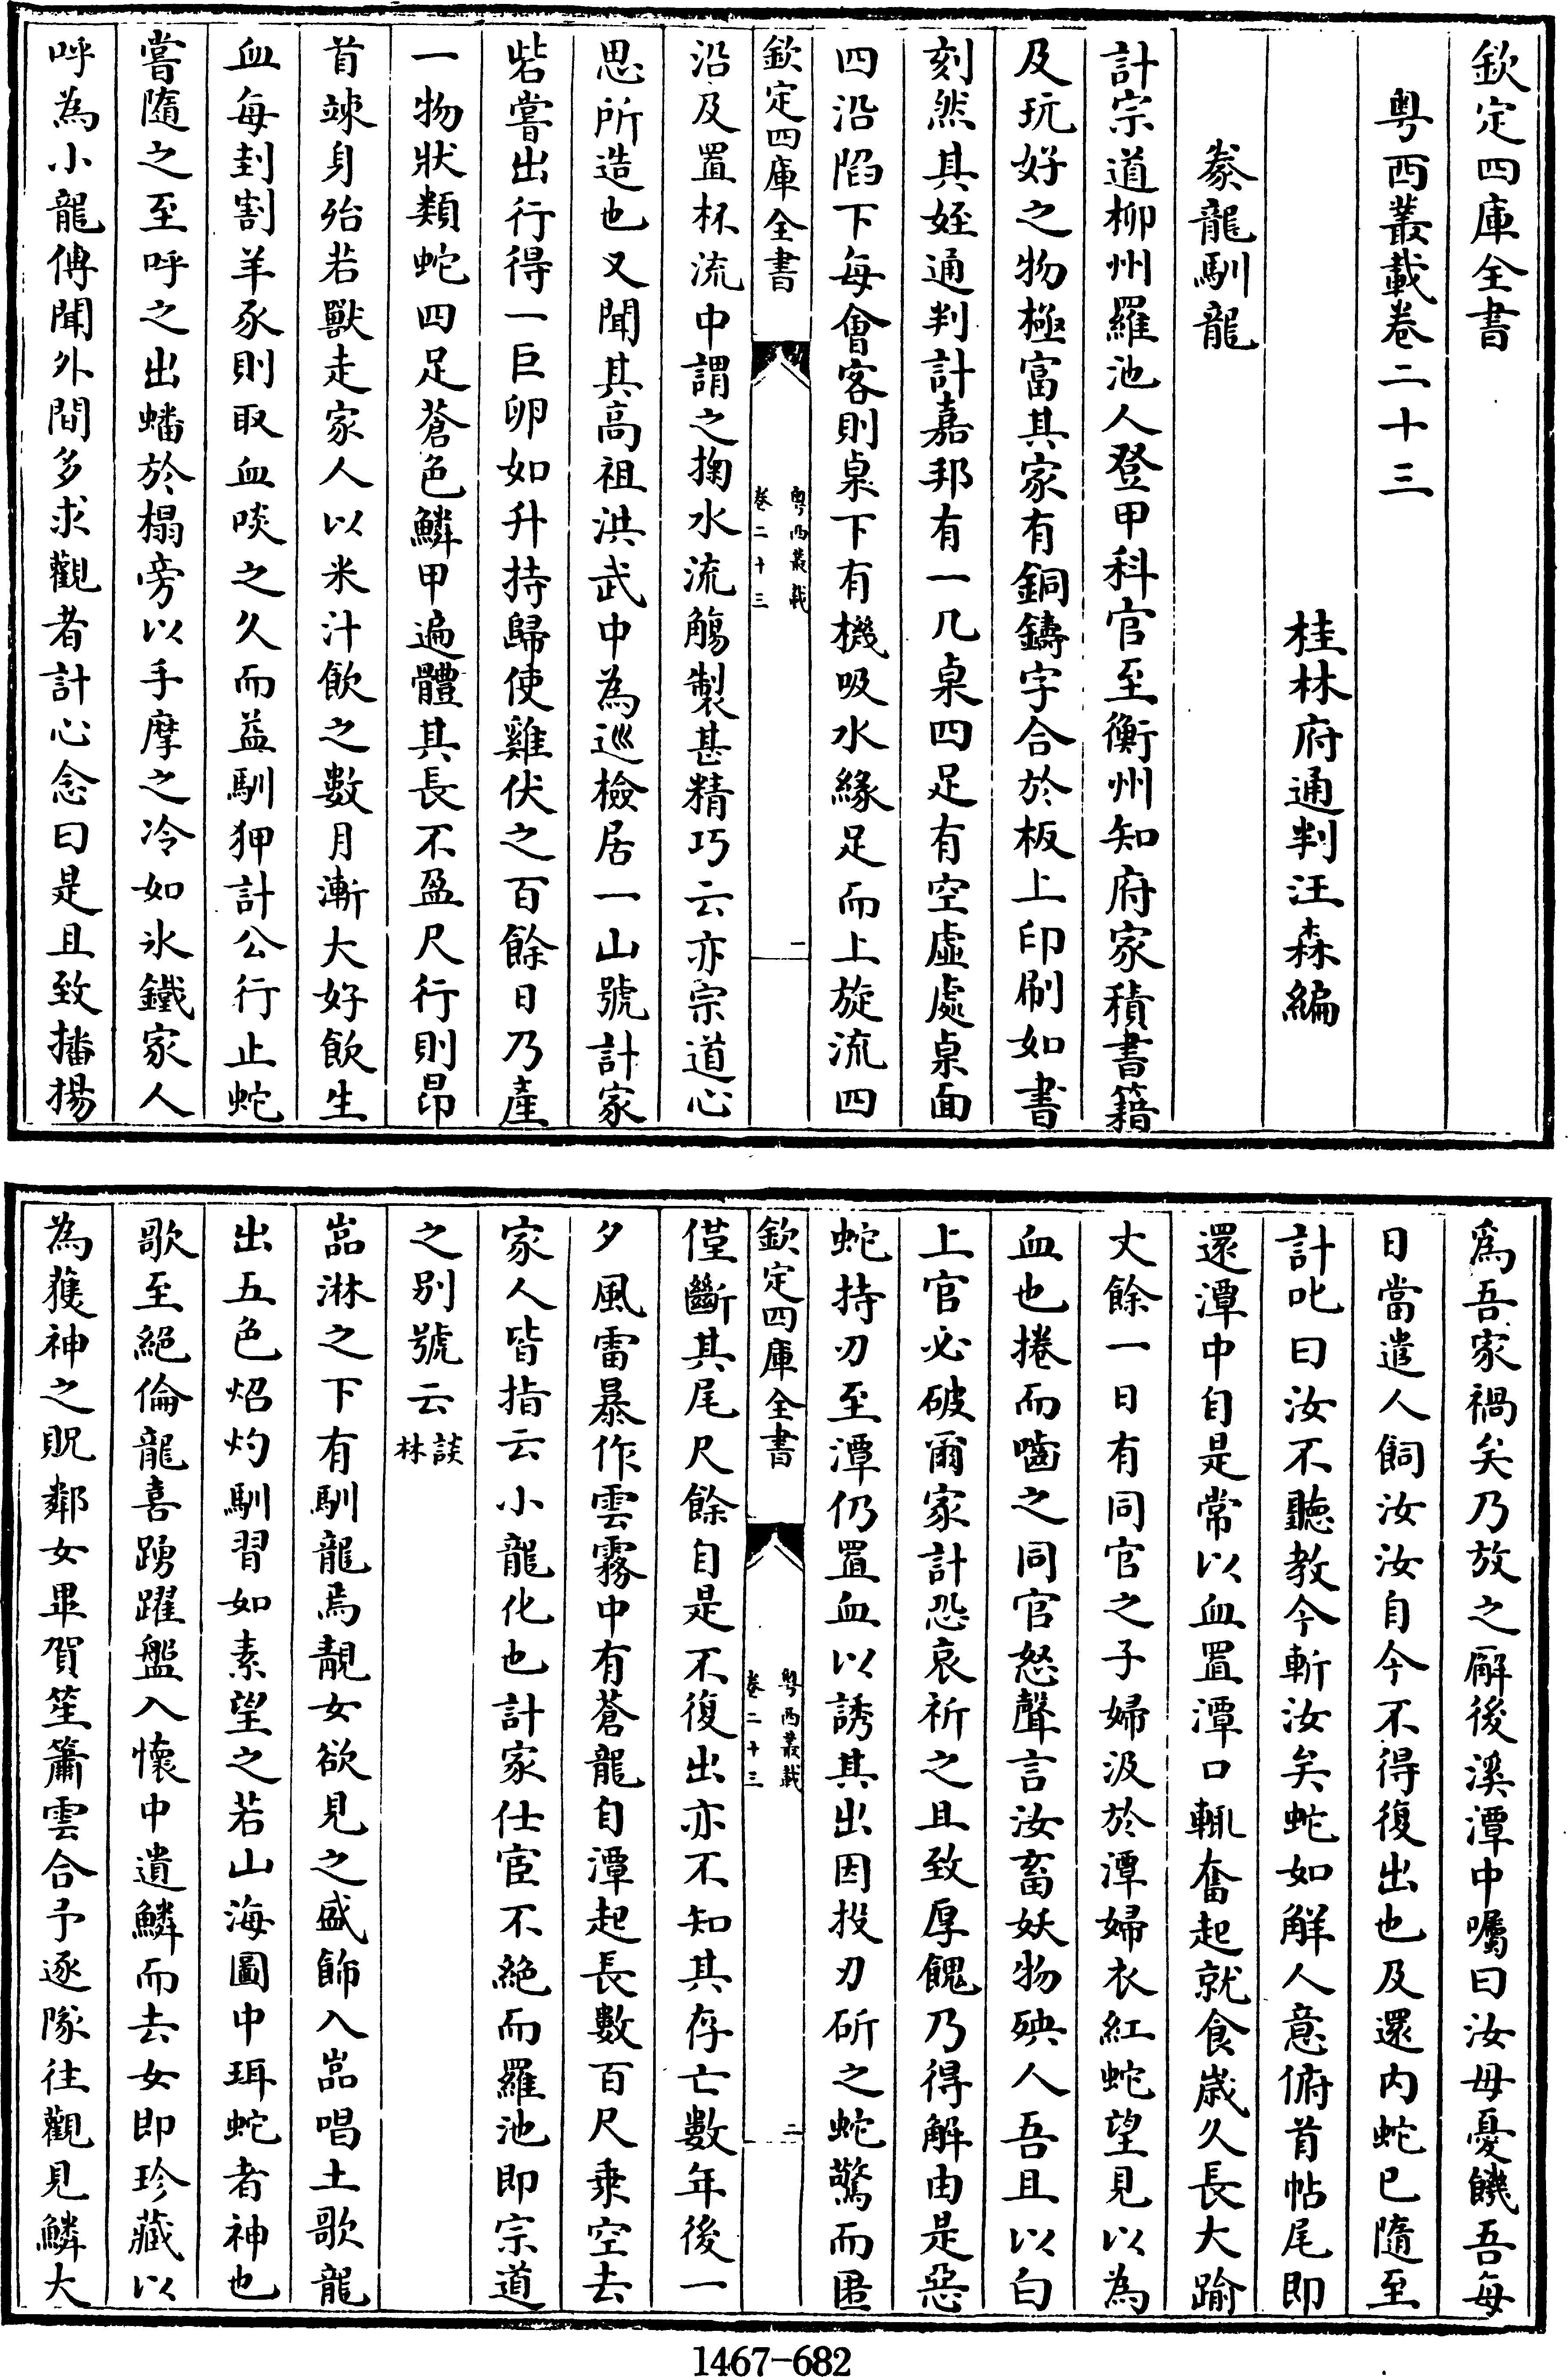 欽定四庫全書
粤西叢載卷二十三
桂林府通判汪森編
豢龍馴龍
計宗道柳州羅池人登甲科官至衡州知府家積書籍
及玩好之物極富其家有銅鑄字合於板上印刷如書
刻然其姪通判計嘉邦有一几桌四足有空虛處桌面
四沿陷下每會客則桌下有機吸水緣足而上旋流四
欽定四庫全書
粤西叢載
卷二十三
一
沿及置杯流中謂之掬水流觴製甚精巧云亦宗道心
思所造也又聞其高祖洪武中為巡檢居一山號計家
砦嘗出行得一巨卵如升持歸使雞伏之百餘日乃產
一物狀類蛇四足蒼色鱗甲遍體其長不盈尺行則昂
首竦身殆若獸走家人以米汁飲之數月漸大好飲生
血每封割羊豕則取血啖之久而益馴狎計公行止蛇
嘗隨之至呼之出蟠於榻旁以手摩之冷如氷鐵家人
呼為小龍傅聞外間多求觀者計心念曰是且致播揚
爲吾家禍矣乃放之廨後溪潭中囑曰汝毋憂饑吾每
日當遣人飼汝汝自今不得復出也及還内蛇已隨至
計叱曰汝不聽教今斬汝矣蛇如解人意俯首帖尾即
還潭中自是常以血置潭口輒奮起就食歲久長大踰
丈餘一日有同官之子婦汲於潭婦衣紅蛇望見以為
血也捲而嚙之同官怒聲言汝畜妖物殃人吾且以白
上官必破爾家計恐哀祈之且致厚餽乃得解由是惡
蛇持刃至潭仍置血以誘其出因投刃斫之蛇驚而匿
欽定四庫全書
粤西叢載
卷二十三
二
僅斷其尾尺餘自是不復出亦不知其存亡數年後一
夕風雷暴作雲霧中有蒼龍自潭起長數百尺乗空去
家人皆指云小龍化也計家仕宦不絶而羅池即宗道
之别號云談
林
嵓淋之下有馴龍焉靚女欲見之盛飾入嵓唱土歌龍
出五色炤灼馴習如素望之若山海圖中珥蛇者神也
歌至絶倫龍喜踴躍盤入懷中遺鱗而去女即珍藏以
為獲神之貺鄰女畢賀笙簫雲合予逐隊往觀見鱗大
1467-682